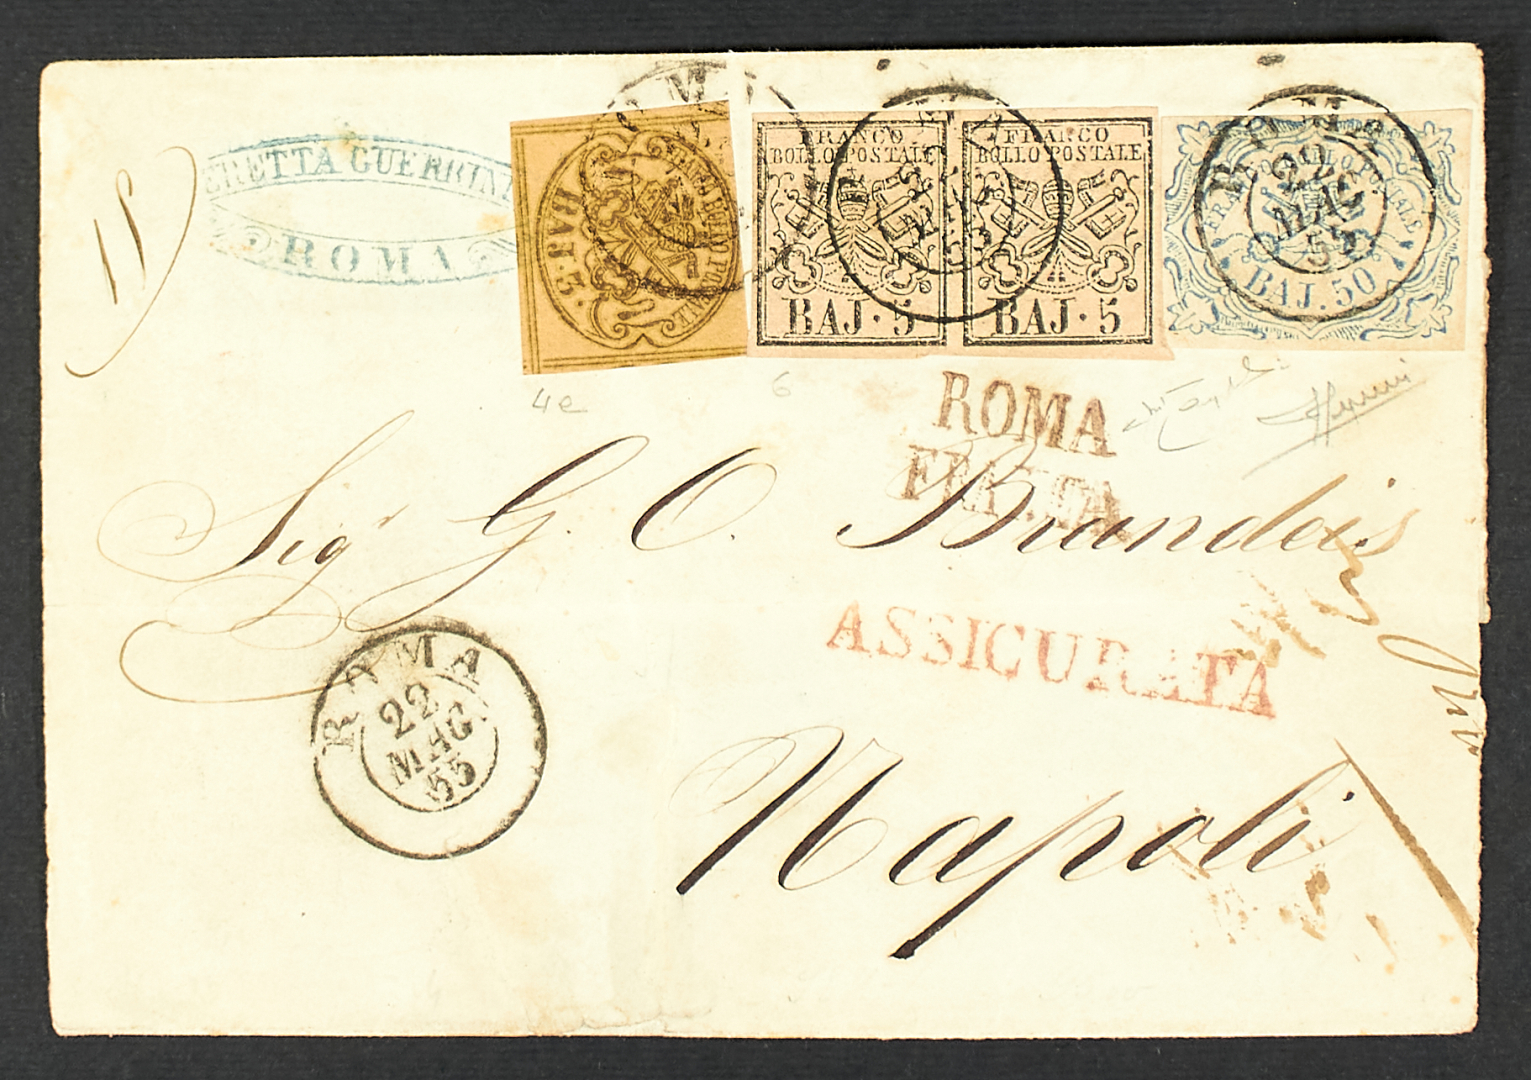 ERETTA GUERRINI
ROMA
15
FRANCO BOLLO POSTALE
BAJ. 3.
FRANCO
BOLLO POSTALE
BAJ · 5
FRANCO
BOLLO POSTALE
BAJ · 5
FRANCO BOLLO POSTALE
BAJ. 50
ROMA
22
MAG
55
4e
6
ROMA
Sig G. O. Brandeis
ASSICURATA
ROMA
22
MAG
55
Napoli